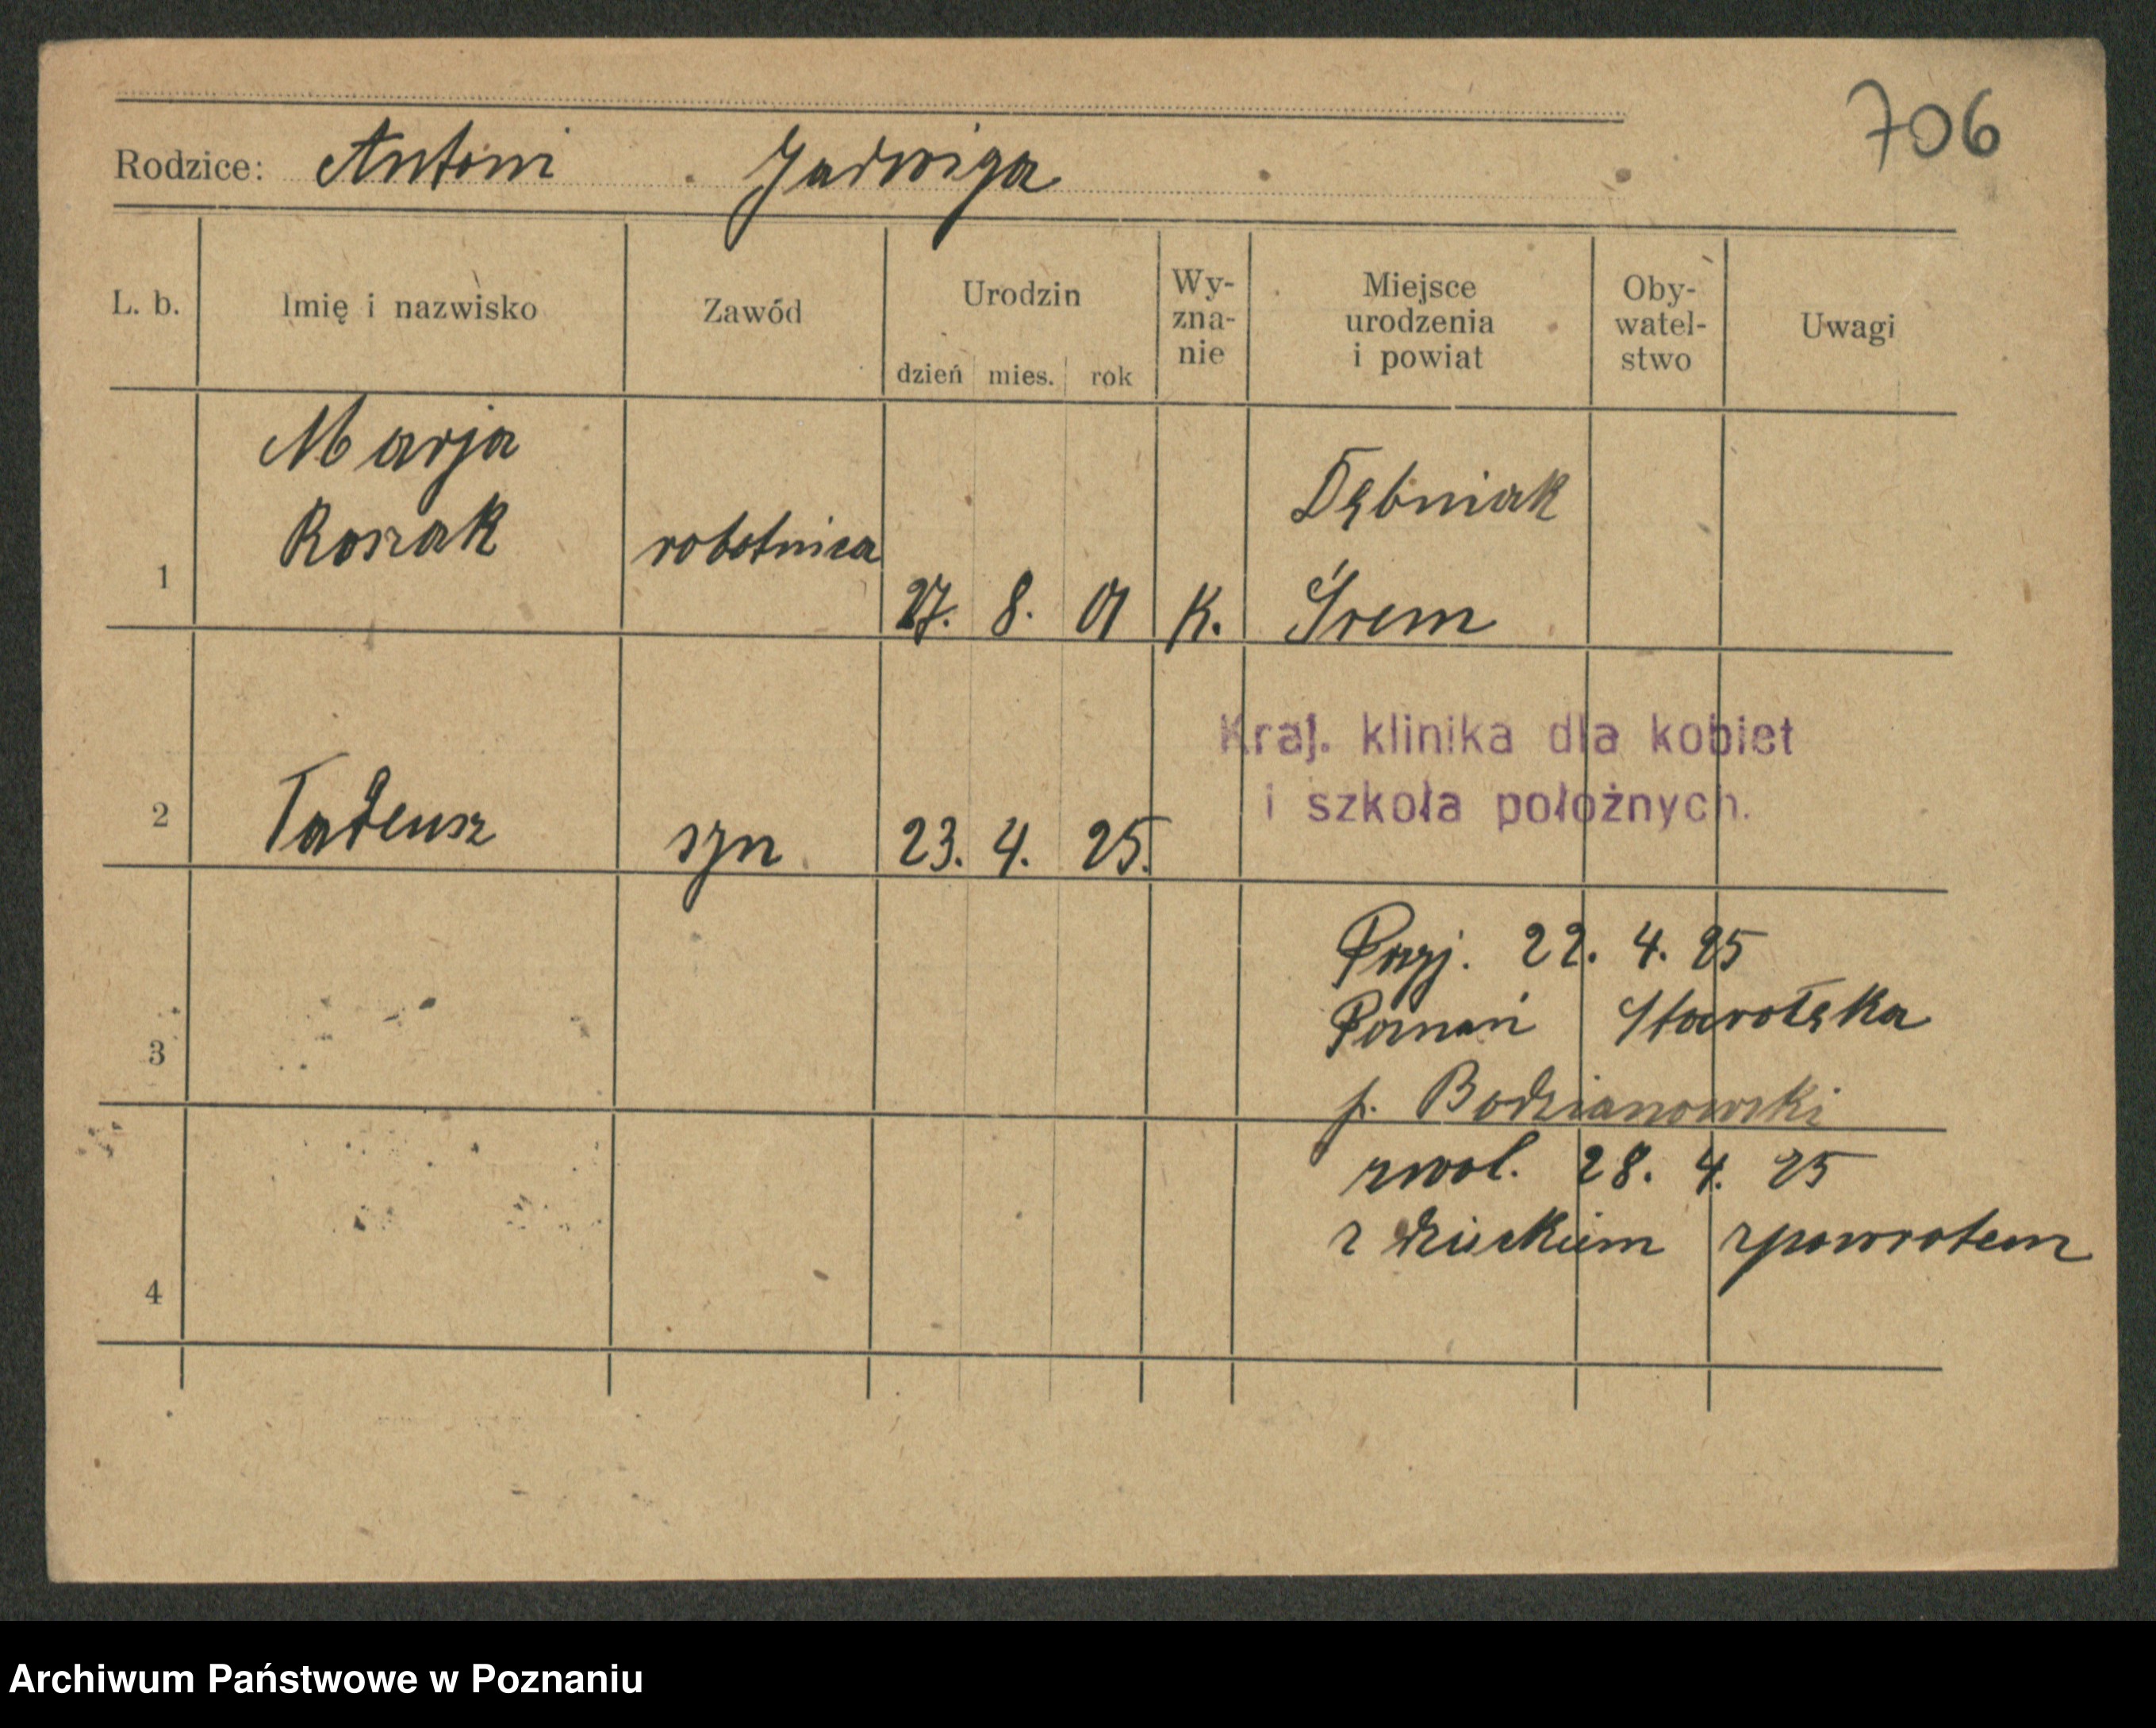 706
Rodzice: Antoni Jadwiga
L. b. Imię i nazwisko Zawód Urodzin dzień mies. rok Wy- zna- nie Miejsce urodzenia i powiat Oby- watel- stwo Uwagi
Marja
Roszak robotnica Dębniak
1 27. 8. 01 K. Śrem
Kraj. klinika dla kobiet
i szkoła położnych.
2 Tadeusz syn 23. 4. 25.
Przyj. 22. 4. 25
Poznań Starołęka
3
p. Bodzianowski
zwol. 28. 4. 25
z dzieckiem zpowrotem
4
Archiwum Państwowe w Poznaniu